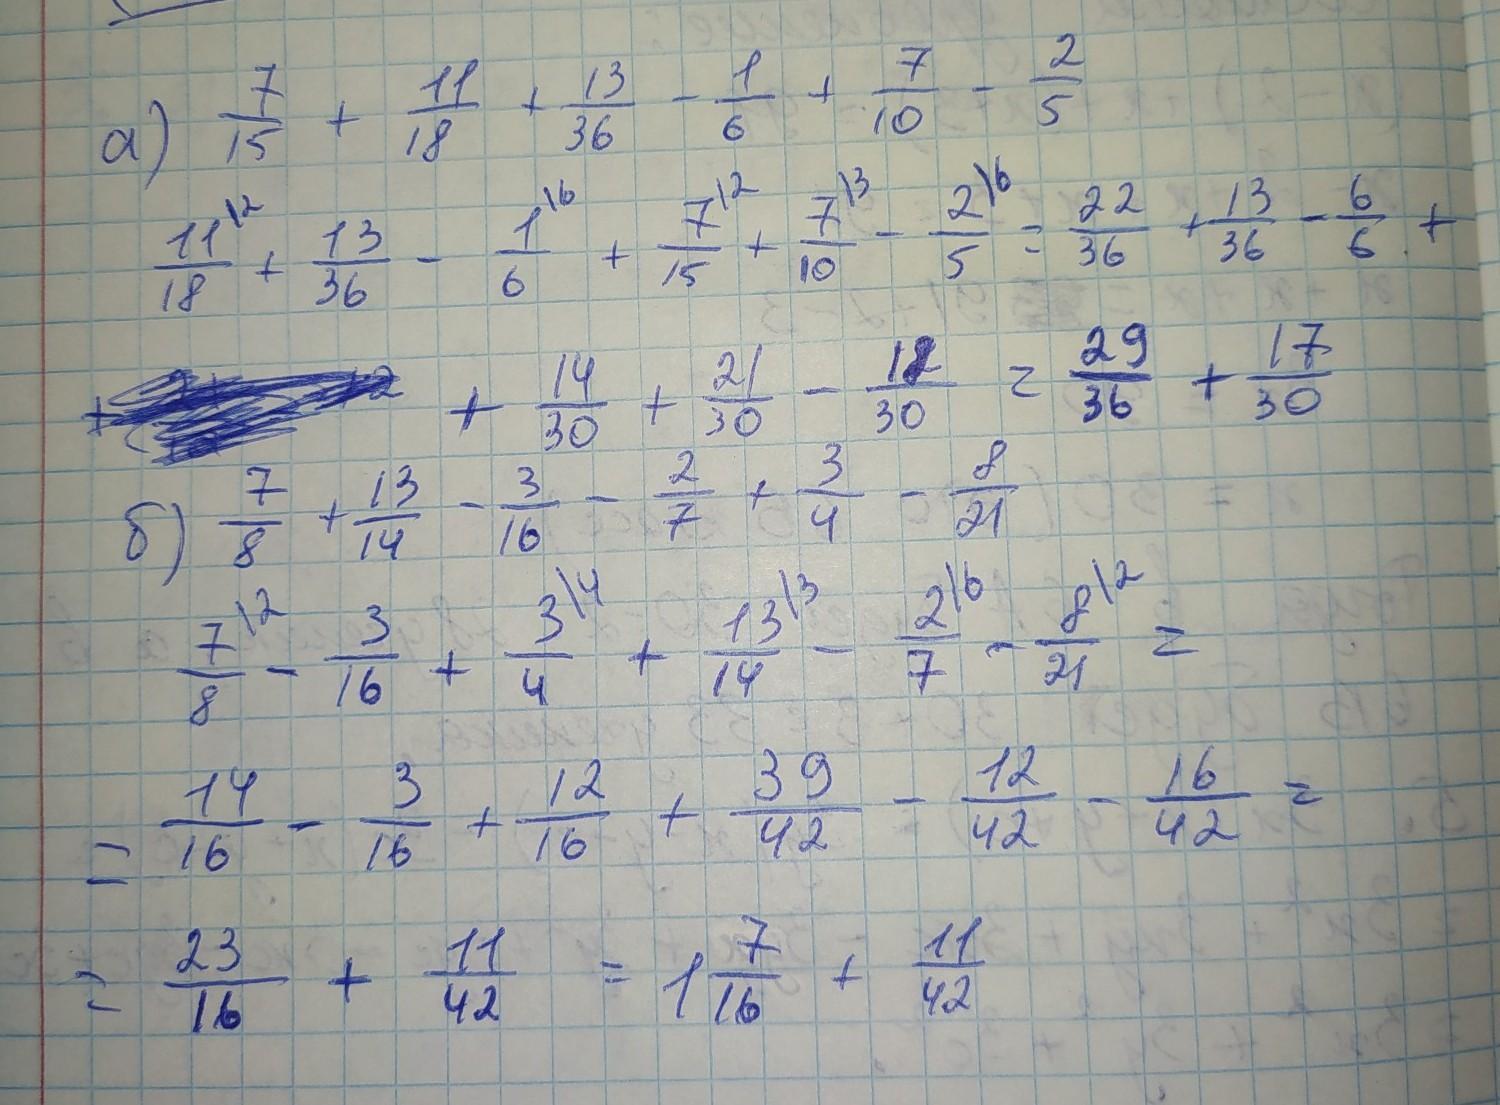 а) 7/15 + 11/18 + 13/36 - 1/6 + 7/10 - 2/5
11\2/18 + 13/36 - 1\6/6 + 7\2/15 + 7\3/10 - 2\6/5 = 22/36 + 13/36 - 6/6 +
+ 14/30 + 21/30 - 18/30 = 29/36 + 17/30
б) 7/8 + 13/14 - 3/16 - 2/7 + 3/4 - 8/21
7\2/8 - 3/16 + 3\4/4 + 13\3/14 - 2\6/7 - 8\2/21 =
= 14/16 - 3/16 + 12/16 + 39/42 - 12/42 - 16/42 =
= 23/16 + 11/42 = 1 7/16 + 11/42